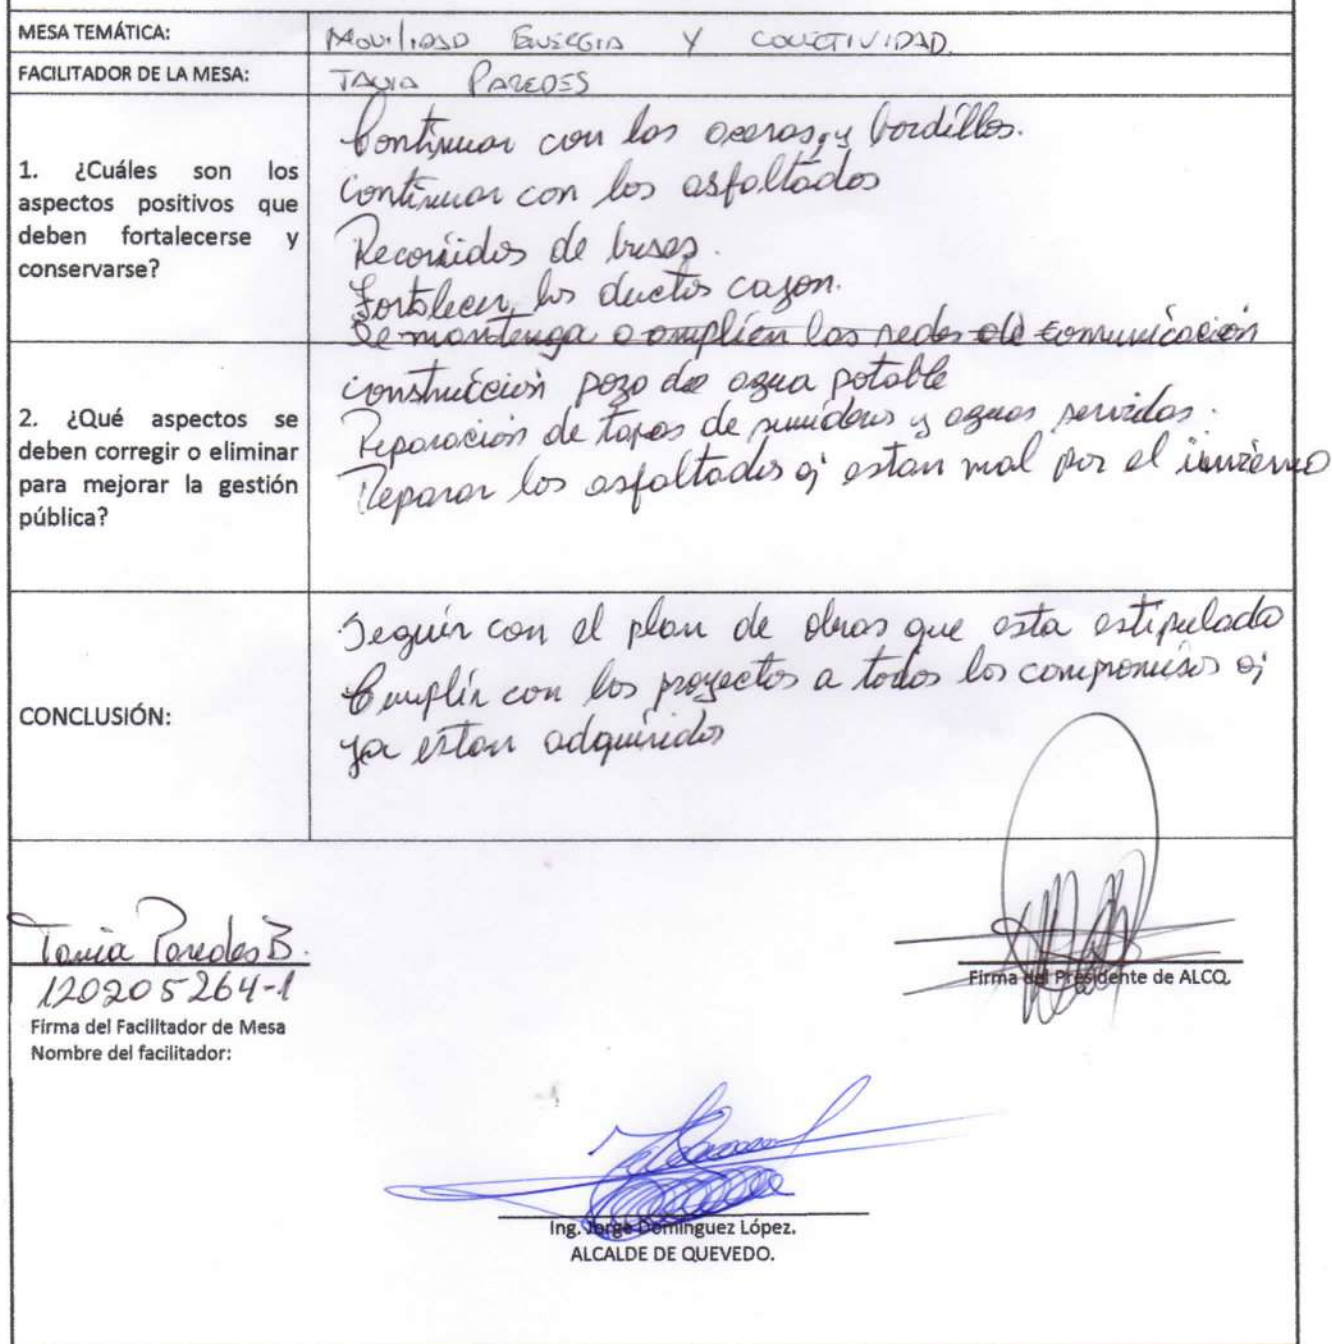 MESA TEMÁTICA: MOVILIDAD ENERGIA Y CONECTIVIDAD.
FACILITADOR DE LA MESA: TANIA PAREDES
1. ¿Cuáles son los aspectos positivos que deben fortalecerse y conservarse?
Continuar con las aceras, y bordillos.
Continuar con los asfaltados
Recorridos de buses.
Fortalecer los ductos cajon.
Se mantenga o amplien las redes de comunicación
2. ¿Qué aspectos se deben corregir o eliminar para mejorar la gestión pública?
Construcción pozo de agua potable
Reparación de tapas de sumideros y aguas servidas.
Reparar los asfaltados q' estan mal por el invierno
CONCLUSIÓN:
Seguir con el plan de obras que esta estipulado
Cumplir con los proyectos a todos los compromisos q'
ya estan adquiridos
Tania Paredes B.
120205264-1
Firma del Facilitador de Mesa
Nombre del facilitador:
Firma del Presidente de ALCQ.
Ing. Jorge Domínguez López.
ALCALDE DE QUEVEDO.